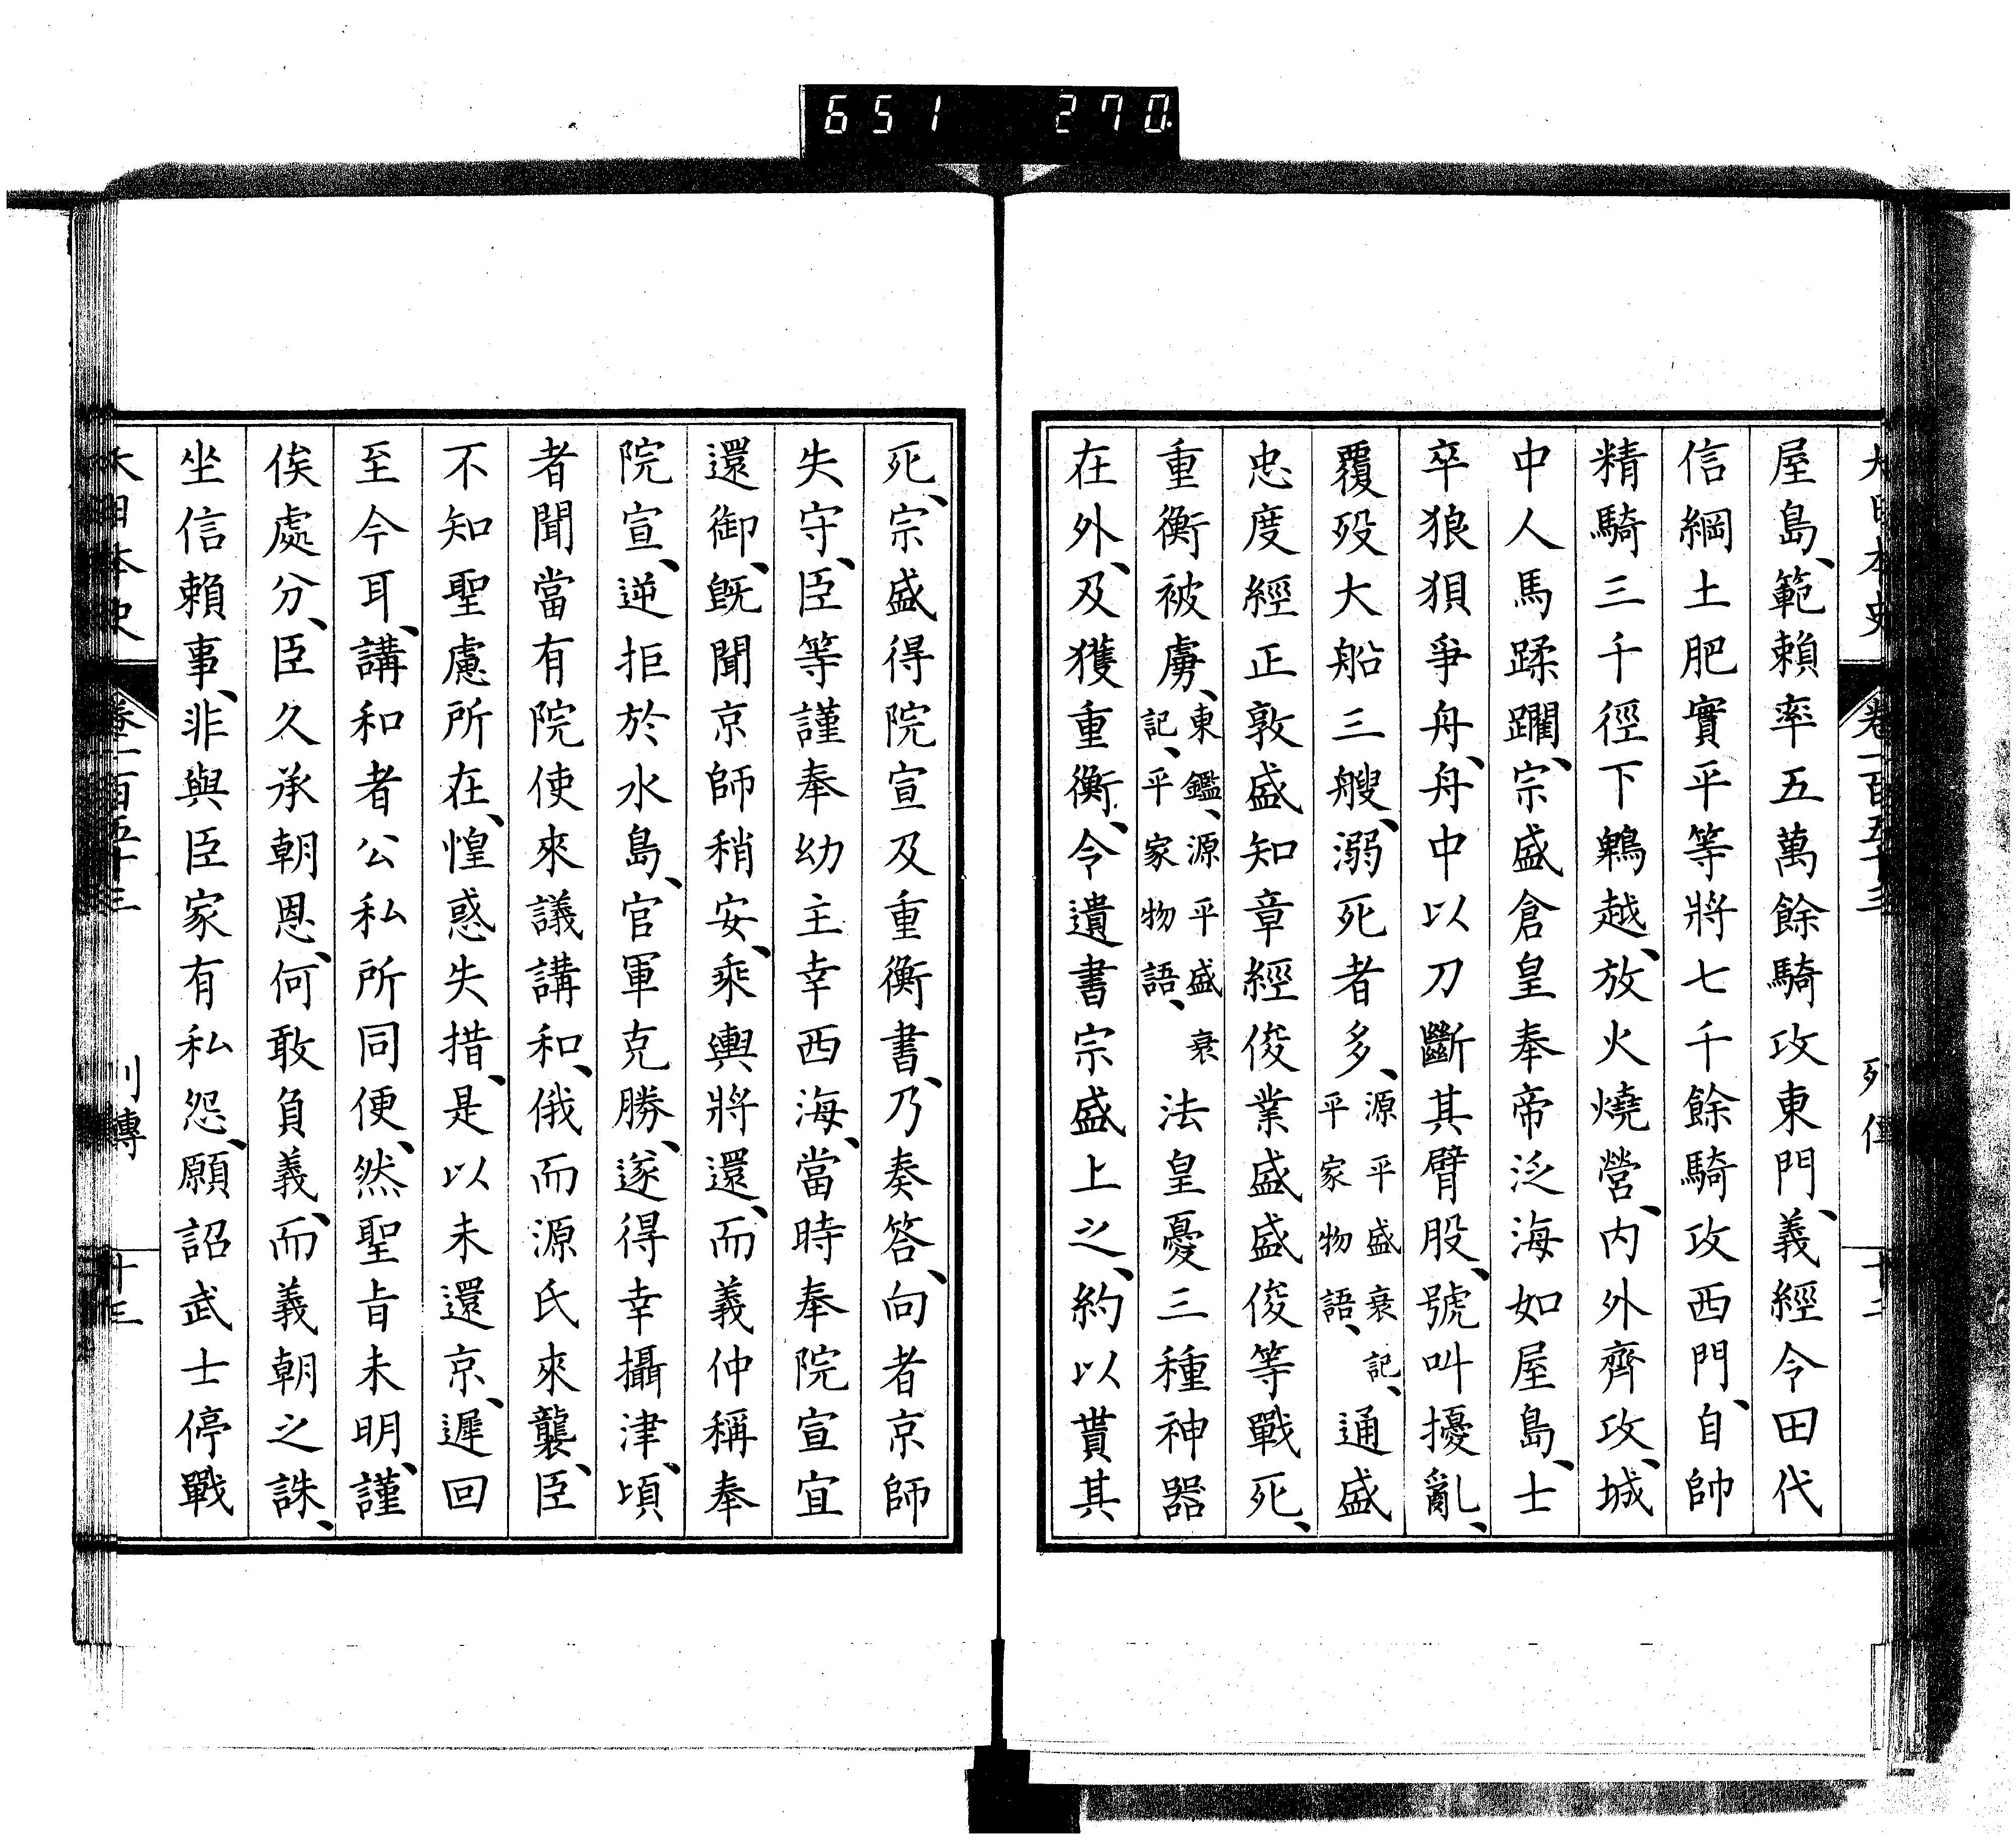 651 270
大日本史 卷一百五十三 列傳 十二
屋島、範賴率五萬餘騎攻東門、義經令田代
信綱土肥實平等將七千餘騎攻西門、自帥
精騎三千徑下鵯越、放火燒營、內外齊攻、城
中人馬蹂躙、宗盛倉皇奉帝泛海如屋島、士
卒狼狽爭舟、舟中以刀斷其臂股、號叫擾亂、
覆歿大船三艘、溺死者多、源平盛衰記、平家物語、通盛
忠度經正敦盛知章經俊業盛盛俊等戰死、
重衡被虜、東鑑、源平盛衰記、平家物語、法皇憂三種神器
在外、及獲重衡、令遺書宗盛上之、約以貰其
死、宗盛得院宣及重衡書、乃奏答、向者京師
失守、臣等謹奉幼主幸西海、當時奉院宣宜
還御、既聞京師稍安、乘輿將還、而義仲稱奉
院宣、逆拒於水島、官軍克勝、遂得幸攝津、頃
者聞當有院使來議講和、俄而源氏來襲、臣
不知聖慮所在、惶惑失措、是以未還京、遲回
至今耳、講和者公私所同便、然聖旨未明、謹
俟處分、臣久承朝恩、何敢負義、而義朝之誅、
坐信賴事、非與臣家有私怨、願詔武士停戰
大日本史 卷一百五十三 列傳 十三